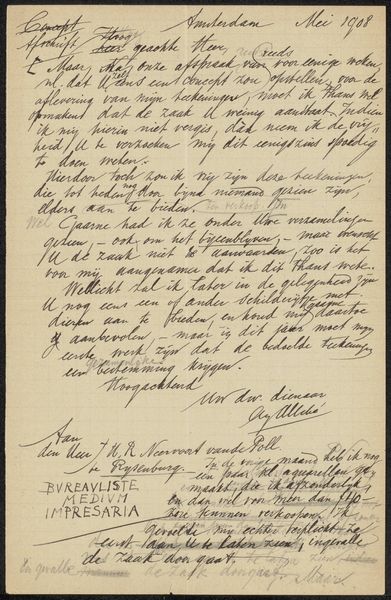 Concept
Amsterdam Mei 1908
Afschrift Hoog geachte Heer
Maar onze afspraak van voor eenige weken,
nl. dat U eens een concept zou opstellen, voor de
aflevering van mijn teekeningen, moet ik thans wel
opmaken dat de zaak U weinig aanstaat. Indien
ik mij hierin niet vergis, dan neem ik de vrij
heid, U te verzoeken mij dit eenigszins spoedig
te doen weten.
Hierdoor toch zou ik vrij zijn deze teekeningen,
die tot heden nog door bijna niemand gezien zijn,
elders aan te bieden.
Wel
Gaarne had ik ze onder Uwe verzamelingen
gezien, — ook om het bijeenblijven, — maar
U de zaak niet te aanvaarden, zoo is het
voor mij aangenamer dat ik dit thans wete.
Wellicht zal ik later in de gelegenheid zijn
U nog eens een of ander schilderijtje met
dieren aan te bieden, en houd mij daartoe
aanbevolen, — maar in dit jaar moet mijn
eerste werk zijn dat de bedoelde teekeningen
een bestemming krijgen.
Hoogachtend
Uw dw. dienaar
Aan
den Heer W. R. Neervoort van de Poll
te Rysenburg.
BVREAVLISTE
MEDIVM
IMPRESARIA
In de vorige maand heb ik nog
een paar kl. aquarellen ge
maakt, die ik afzonderlijk
en dan wel voor meer dan
zou kunnen verkoopen. Ik
gevoelde mij echter verplicht ze
eerst aan U te laten zien, ingevalle
de zaak doorgaat.
En gevalle de zaak doorgaat. Maar